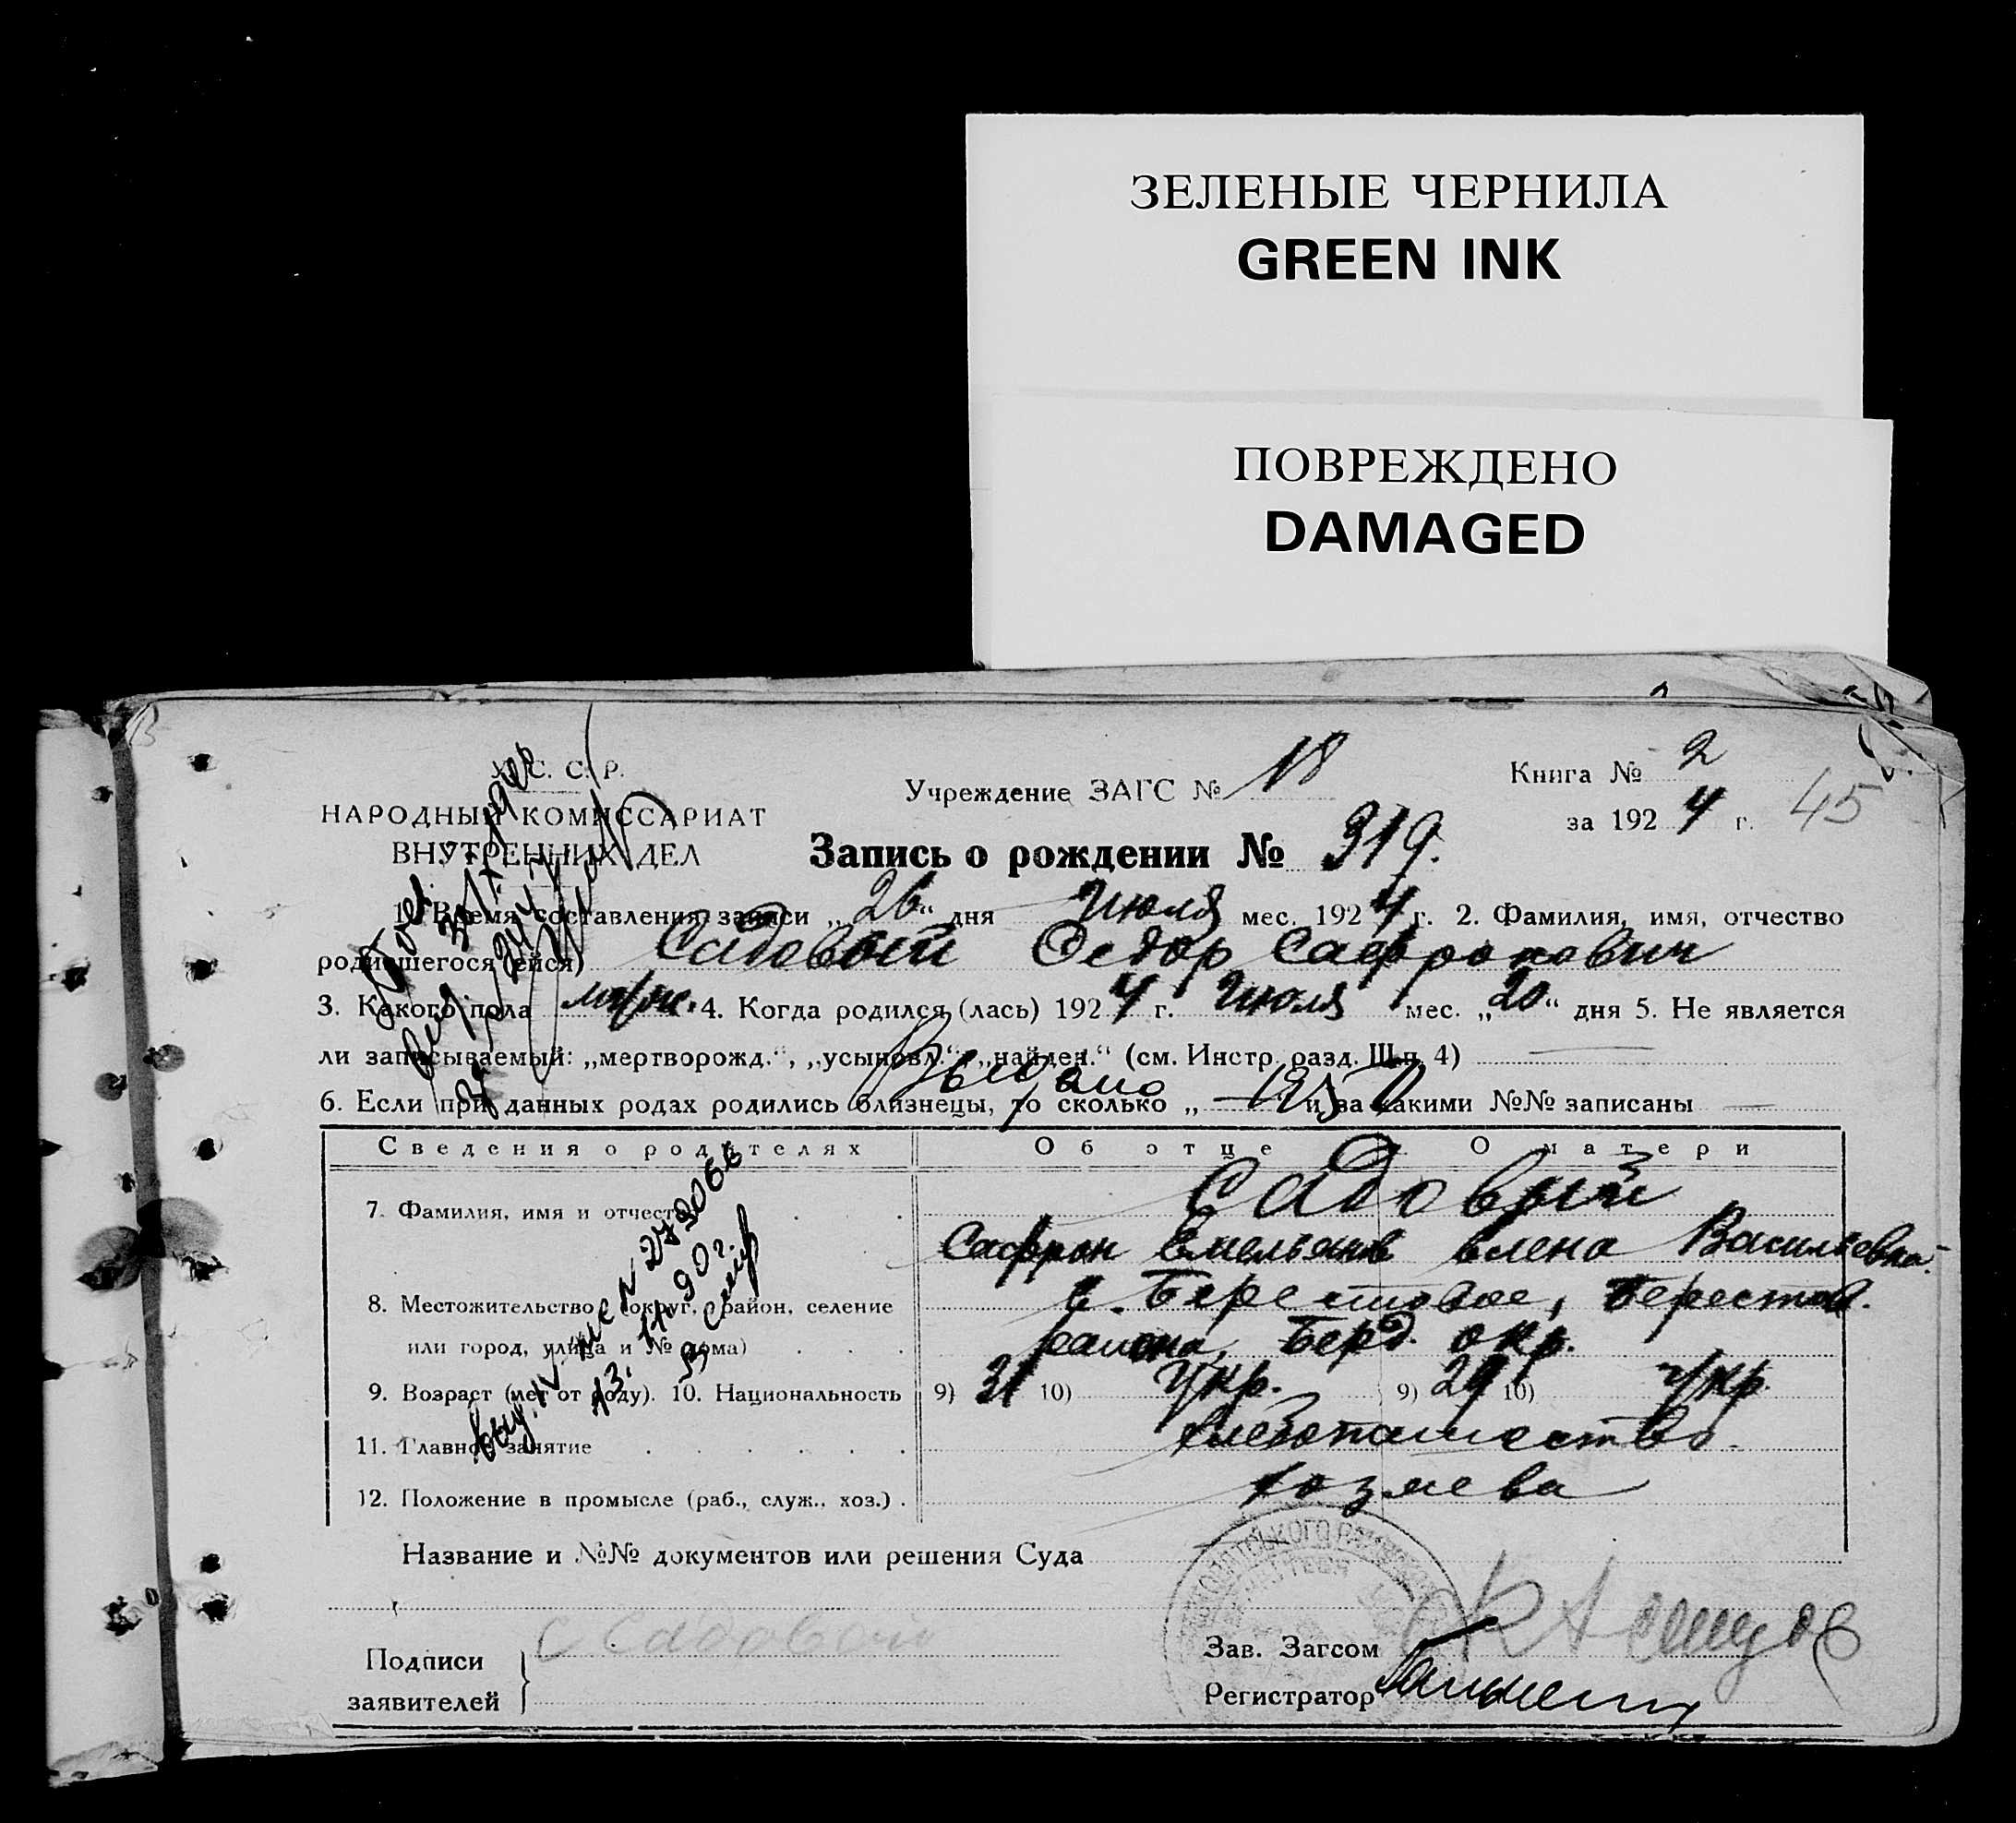 ЗЕЛЕНЫЕ ЧЕРНИЛА
GREEN INK
ПОВРЕЖДЕНО
DAMAGED
С. С. Р.
НАРОДНЫЙ КОМИССАРИАТ
ВНУТРЕННИХ ДЕЛ
Учреждение ЗАГС № 18
Книга № 2
за 1924 г. 45
Запись о рождении № 319.
1. Время составления записи „26“ дня Июля мес. 1924 г. 2. Фамилия, имя, отчество
родившегося (ейся) Садовый Федор Сафронович
3. Какого пола муж. 4. Когда родился (лась) 1924 г. Июля мес. „20“ дня 5. Не является
ли записываемый: „мертворожд.“, „усыновл.“, „найден.“ (см. Инстр. разд. III п. 4) —
6. Если при данных родах родились близнецы, то сколько „ — “ и за какими №№ записаны —
Сведения о родителях Об отце О матери
7. Фамилия, имя и отчество Садовый
Сафрон Емельянов Елена Васильевна
8. Местожительство (округ, район, селение с. Берестовое, Берестов.
или город, улица и № дома) района, Берд. окр.
9. Возраст (лет от роду). 10. Национальность 9) 31 10) Укр. 9) 29 10) Укр.
11. Главное занятие хлебопашество
12. Положение в промысле (раб., служ., хоз.) хозяева
Название и №№ документов или решения Суда
Подписи
заявителей
С Садовый
Зав. Загсом
Регистратор